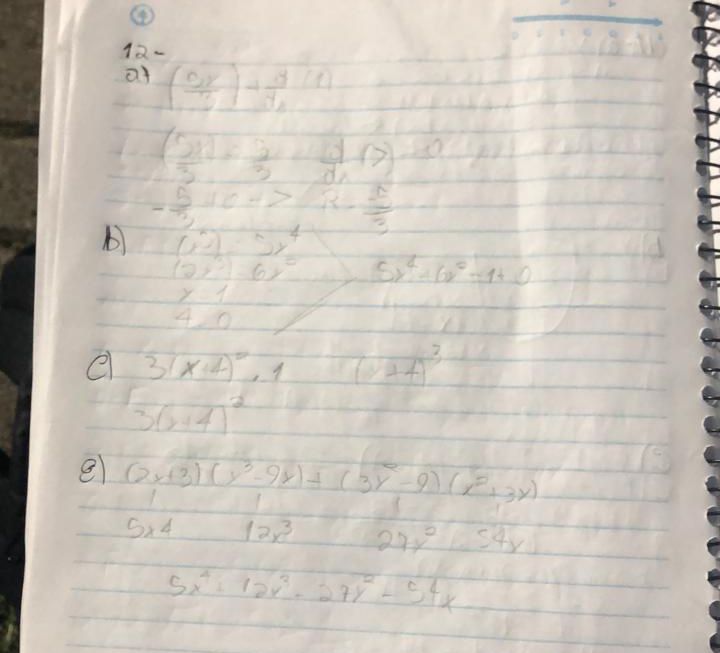 12-
a) (5x/3) + d/dx (1)
(5x/3) = 5/3 d/dx (7) = 0
b) (x⁵) = 5x⁴
(2x³) 6x²
x 1
4 0
5x⁴ + 6x² - 1 + 0
c) 3(x+4)² . 1 (x+4)³
3(x+4)²
e) (2x+3)(x³-9x) + (3x²-9)(x²+3x)
5x4 12x³ 27x² 54x
5x⁴ + 12x³ - 27x² - 54x